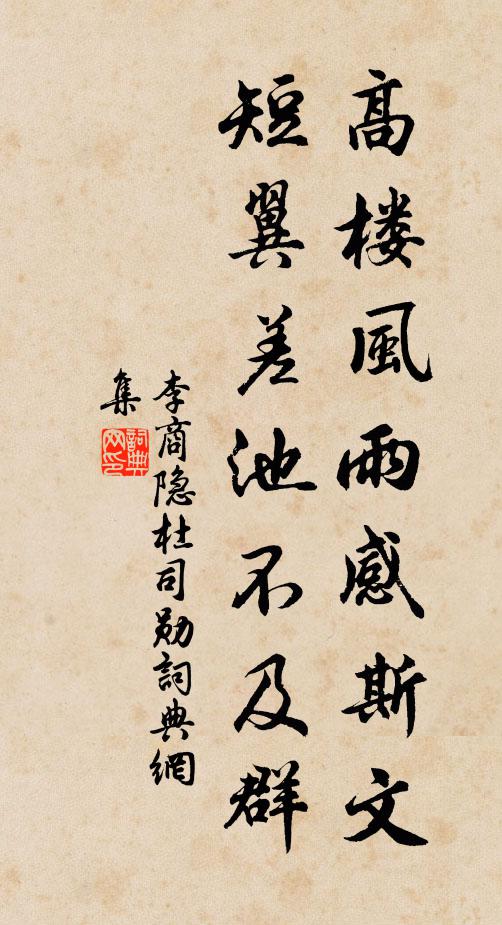 高楼風雨感斯文
短翼差池不及群
李商隐杜司勋詞典網
集
詞典
网印